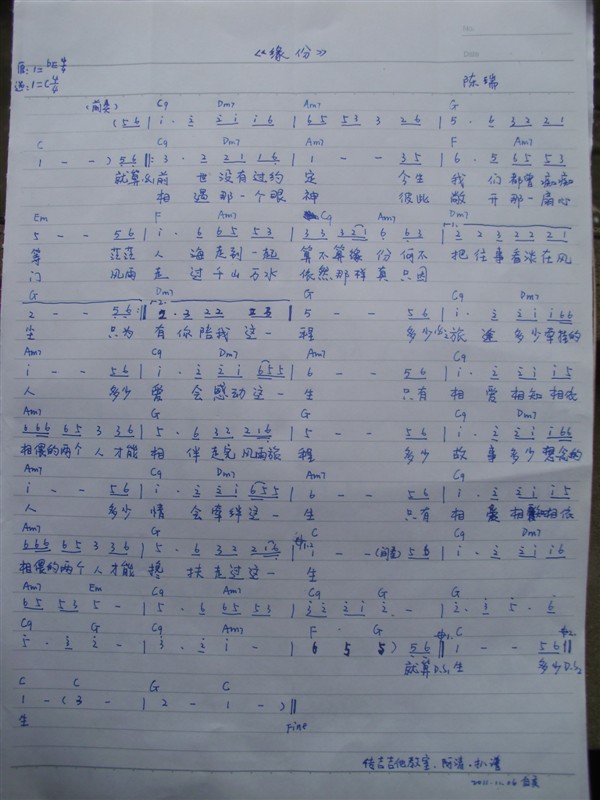 No.
Date
《缘份》
原:1=bE 4/4
选:1=C 4/4
陈瑞
(前奏) C9 Dm7 Am7 G
(5 6 | i · 2 2 i i 6 | 6 5 5 3 3 2 6 | 5 · 6 3 2 2 1
C C9 Dm7 Am7 F Am7
1 - - ) 5 6 ‖: 3 · 2 2 1 1 6 | 1 - - 3 5 | 6 · 5 6 5 5 3
就算 前 世 没有过约 定 今生 我 们都曾痴痴
相 遇那一个眼 神 彼此 敞 开那一扇心
Em F Am7 C9 Am7 Dm7
5 - - 5 6 | i · 6 6 5 5 3 | 3 3 3 2 1 6 6 3 | 2 2 3 2 2 2 1
等 茫茫 人 海走到一起 算不算缘 份 何不 把往事看淡在风
门 风雨 走 过千山万水 依然那样真 只因
G Dm7 G C9 Dm7
2 - - 5 6 :‖ 2 · 3 2 2 2 3 | 5 - - 5 6 | i · 2 2 i i 6 6
尘 只为 有你陪我这一 程 多少 旅 途 多少牵挂的
Am7 C9 Dm7 Am7 C9
i - - 5 6 | i · 2 2 i 6 5 5 | 6 - - 5 6 | i · 2 2 i i 5
人 多少 爱 会感动这一 生 只有 相 爱相知相依
Am7 G G C9 Dm7
6 6 6 6 5 3 3 6 | 5 · 6 3 2 2 1 6 | 5 - - 5 6 | i · 2 2 i i 6 6
相偎的两个人才能 相 伴走完风雨旅 程 多少 故 事多少想念的
Am7 C9 Dm7 Am7 C9
i - - 5 6 | i · 2 2 i 6 5 5 | 6 - - 5 6 | i · 2 2 i i 5
人 多少 情 会牵绊这一 生 只有 相 爱相知相依
Am7 G C C9 Dm7
6 6 6 6 5 3 3 6 | 5 · 6 3 2 2 1 6 | 1 - - (间奏) 5 6 | i · 2 2 i i 6
相偎的两个人才能 搀 扶走过这一 生
Am7 Em C9 Am7 C9 G G
6 5 5 3 5 - | 5 · 6 6 5 5 3 | 3 2 2 i 2 · - | 2 · 3 5 · 6
C9 G C9 Am7 F G C
5 · 3 2 - | 3 · 2 i - | 6 5 5 ) 5 6 ‖ 1 - - 5 6 ‖
就算D.S1 生 多少D.S2
C C G C
1 - (3 - | 2 - 1 - ) ‖
生 Fine
传吉吉他教室.阿涛·扒谱
2011.11.06